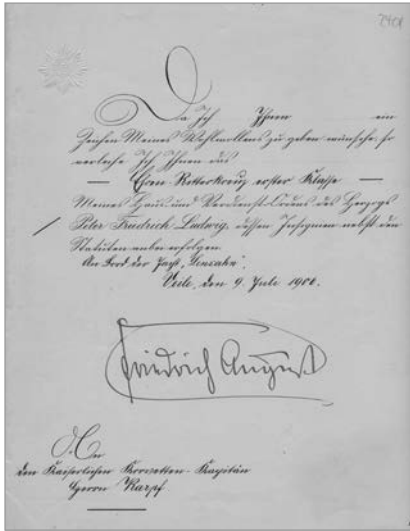 2401
Da Ich Ihnen ein
Zeichen Meines Wohlwollens zu geben wünsche, so
verleihe Ich Ihnen das
— Ehren-Ritterkreuz erster Klasse —
Meines Haus- und Verdienst-Ordens des Herzogs
Peter Friedrich Ludwig, dessen Insignien nebst den
Statuten anbei erfolgen.
An Bord der Jacht „Lensahn“.
den 9. Juli 1900.
Friedrich August
An
den Kaiserlichen Korvetten-Kapitän
Herrn Karpf.